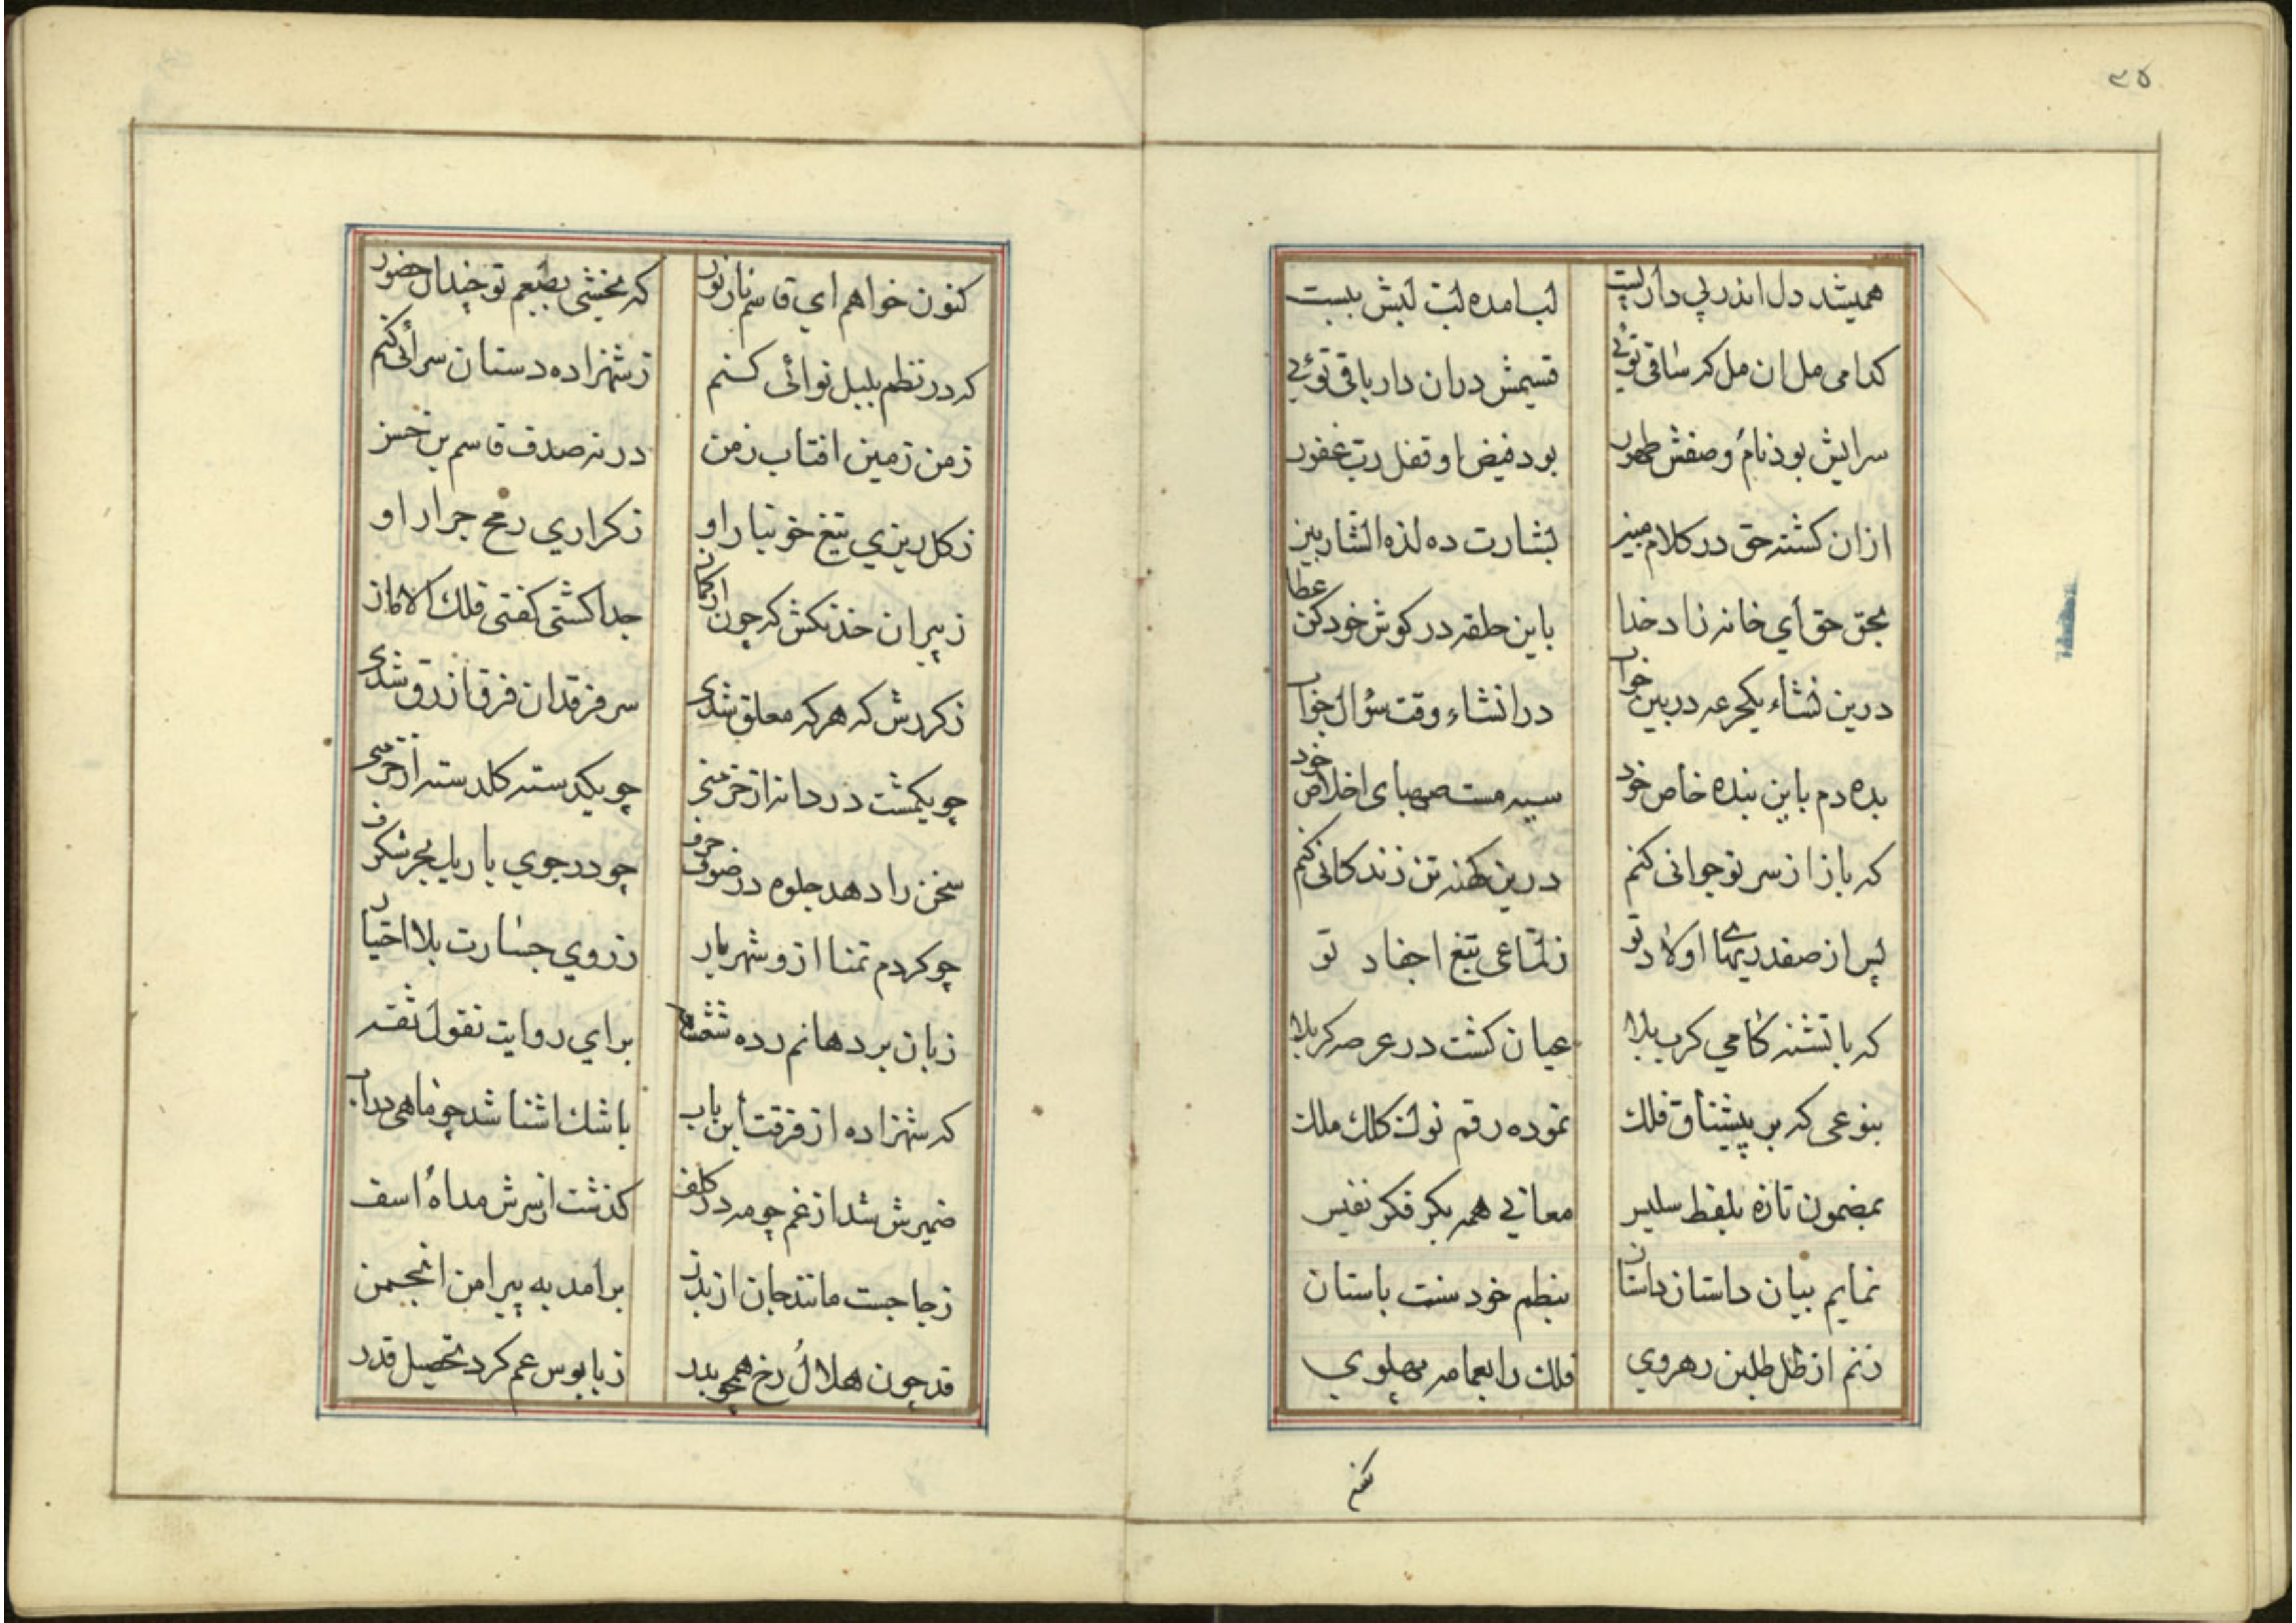 ۳۵
همیشد دل اندر پی دارلیت لب امده لیت لبش بیست
کدامی مل ان مل که ساقی توئی قسیمش دران دار باقی توئی
سرایش بود نام وصفش طهور بود فیض او قفل رب غفور
ازان کشته حق در کلام مبین بشارت ده لذه الشاربین
بحق حق أي خانه زاد خدا باین حلقه در کوش خود کن عطا
درین نشاء یکجرعه در بین خواب درانشاء وقت سؤال جواب
بده دم باین بنده خاص خود سیه مست صهبای اخلاص خود
که باز از سر نوجوانی کنم درین کهنه تن زندکانی کنم
پس از صفدریها اولاد تو ز لماعی تیغ اجفاد تو
که با تشنه کامی کرب بلا عیان کشت در عرصه کربلا
بنوعی که بر پیشتاق فلك نموده رقم نوك کلك ملك
بمضمون تازه بلفظ سلیس معانی همه بکر فکر نفیس
نمایم بیان داستان داستان بنظم خود سنت باستان
زنم از ظل طلبن رهروي فلك را بعمامه پهلوي
کنون خواهم اي قاسم نار نور که بخشی بطبعم تو چندال حضور
که در نظم بلبل نوائی کنم ز شهزاده دستان سرائی کنم
زمن زمین افتاب زمن در نه صدف قاسم بن حسن
ز کلریزي تیغ خونبار او ز کراري رمح جرار او
ز پیران خدنکش که چون از کمان جدا کشتی کفتی فلك الامان
ز کردش که هر که معلق شدی سر فرقدان فرق ازرق شدی
چو یکمشت در دانه از خرمنی چو یکدسته کلدسته از خرمنی
سخن را دهد جلوه در ضوف حرف چو در جوي باریك بحر شکرف
چو کردم تمنا ازو شهریار ز روي جسارت بلا اختیار
زبان بر دهانم رده شقشقه براي روایت نقول ثقه
که شهزاده از فرقت أبن باب باشك اشنا شد چو ماهی در اب
ضمیرش شد از غم چو مه در کلف کذشت از سرش مداه اسف
زجا جست مانند جان از بدن برامد به پیرامن انجمن
قد چون هلال رخ همچو بدر ز پابوس عم کرد تحصیل قدر